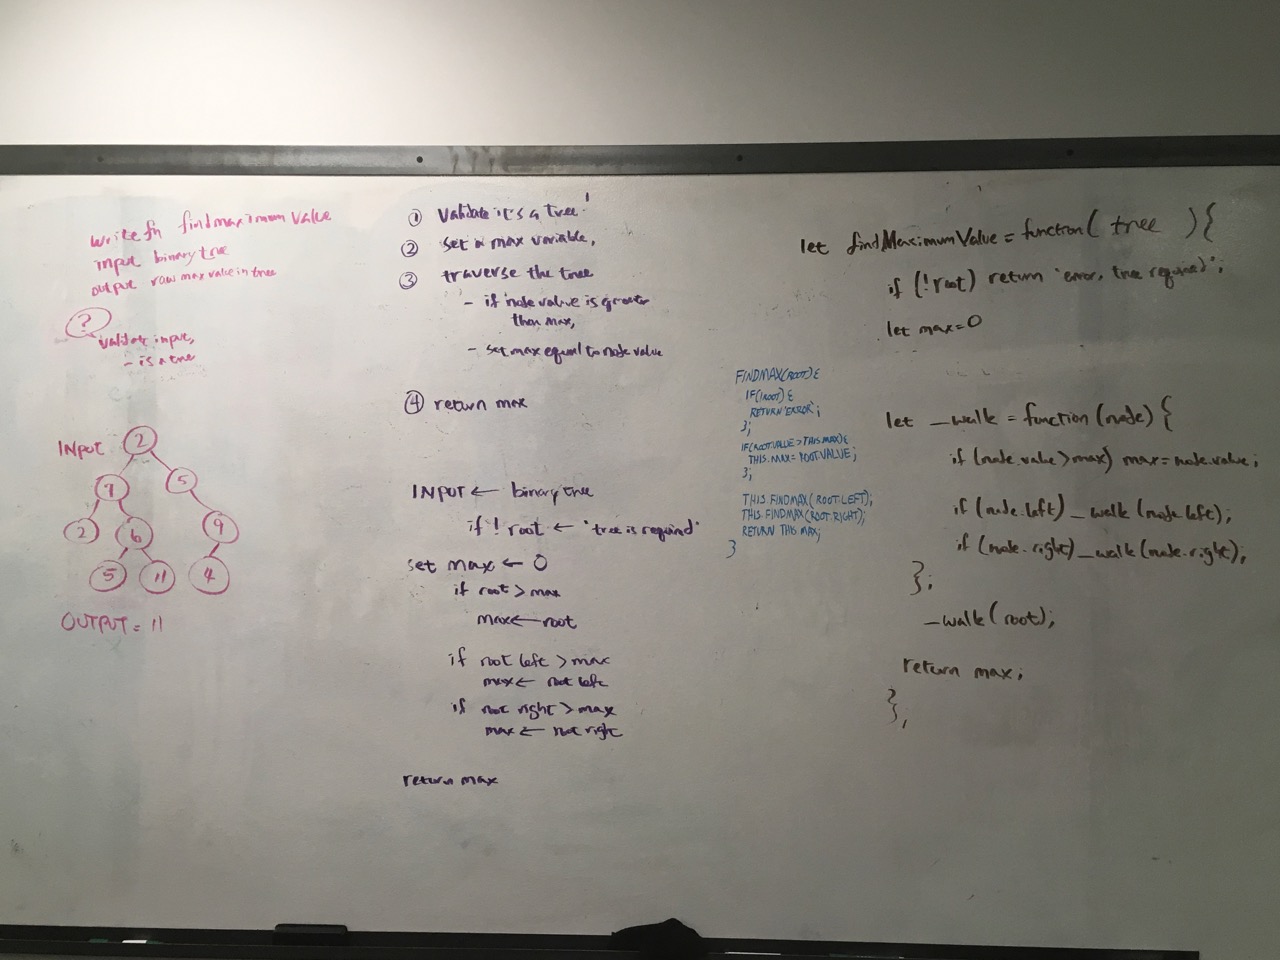 write fn findmaximum value
input binary tree
output raw max value in tree
?
validate input,
- is a tree
INPUT
2
7
5
2
6
9
5
11
4
OUTPUT = 11
① validate it's a tree!
② set a max variable,
③ traverse the tree
- if node value is greater
than max,
- set max equal to node value
④ return max
INPUT ← binary tree
if ! root ← 'tree is required'
set max ← 0
if root > max
max ← root
if root left > max
max ← root left
if root right > max
max ← root right
return max
FINDMAX(ROOT){
IF(!ROOT){
RETURN 'ERROR';
};
IF(ROOT.VALUE > THIS.MAX){
THIS.MAX = ROOT.VALUE;
};
THIS.FINDMAX(ROOT.LEFT);
THIS.FINDMAX(ROOT.RIGHT);
RETURN THIS MAX;
}
let findMaximumValue = function( tree ){
if (!root) return 'error, tree required';
let max=0
let _walk = function(node) {
if (node.value > max) max = node.value;
if (node.left) _walk (node.left);
if (node.right) _walk (node.right);
};
_walk (root);
return max;
};